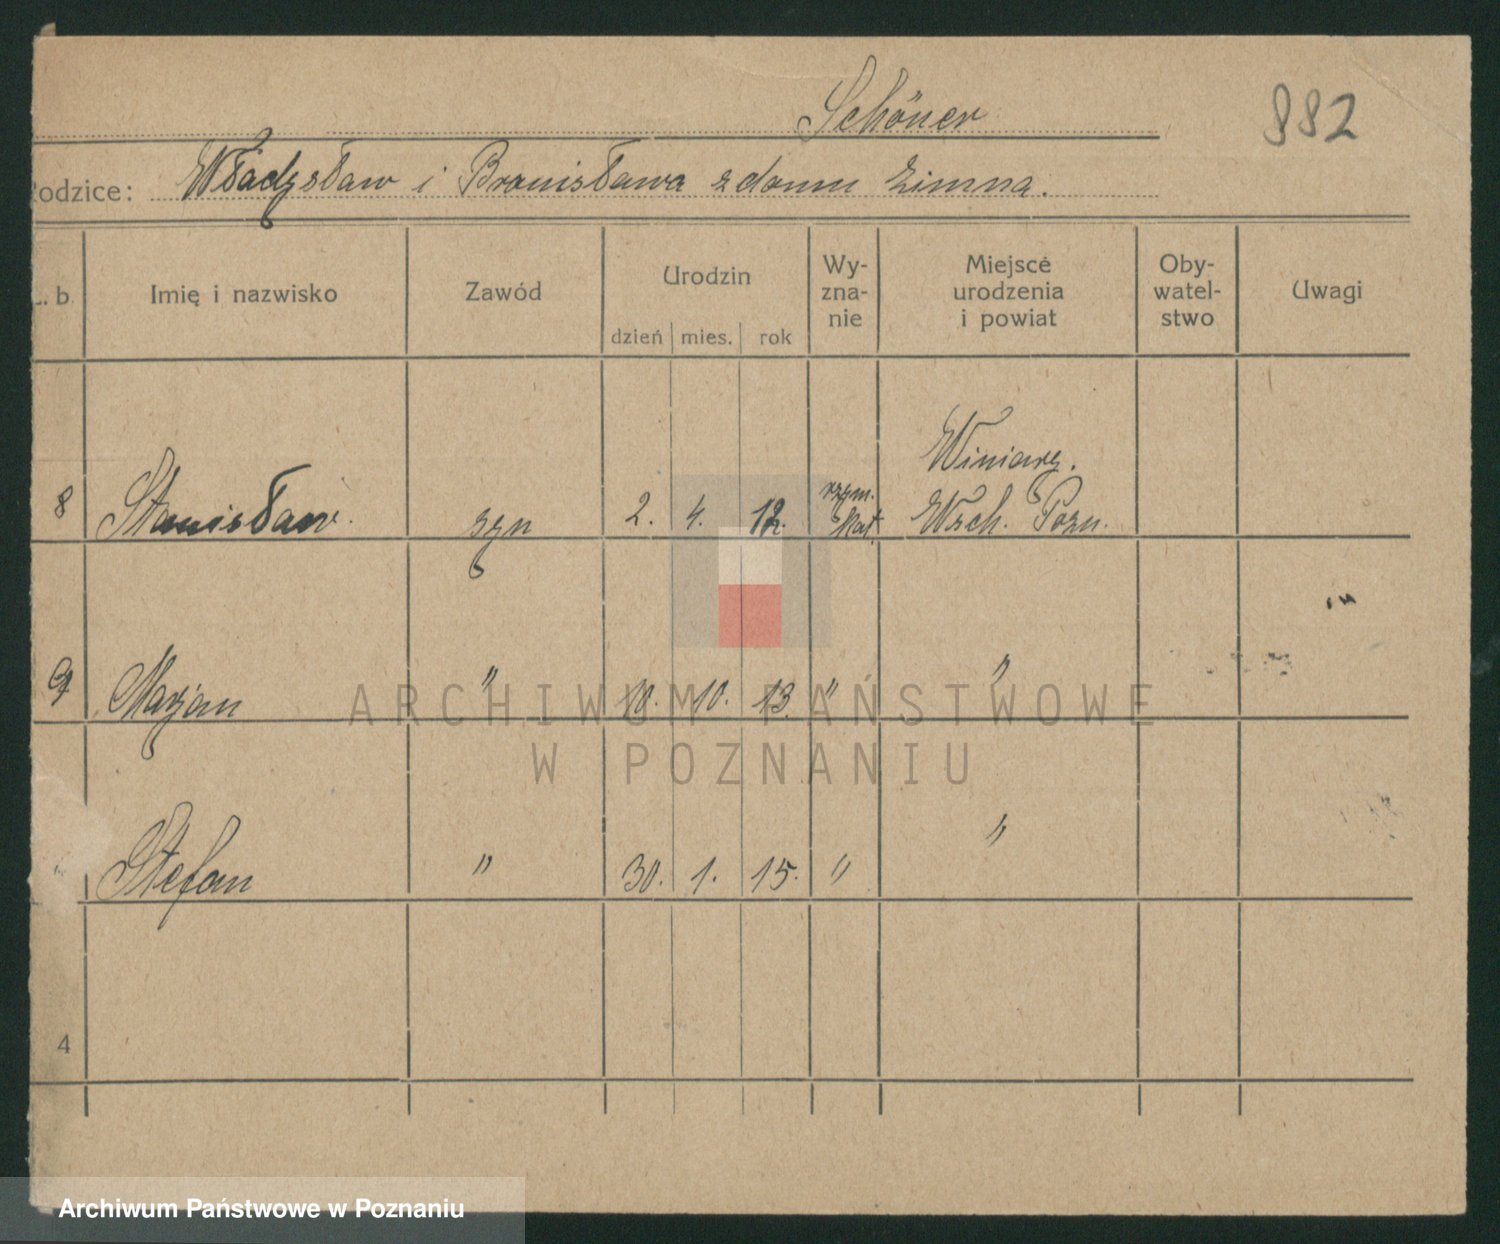 Schöner
882
Rodzice: Władysław i Bronisława z domu Zimna.
L. b
Imię i nazwisko
Zawód
Urodzin
dzień mies. rok
Wy-
zna-
nie
Miejsce
urodzenia
i powiat
Oby-
watel-
stwo
Uwagi
8 Stanisław. syn 2. 4. 12. rzym. kat. Winiary. Wsch. Pozn.
9 Marjan " 10. 10. 13. " "
Stefan " 30. 1. 15. " "
4
ARCHIWUM PAŃSTWOWE
W POZNANIU
Archiwum Państwowe w Poznaniu